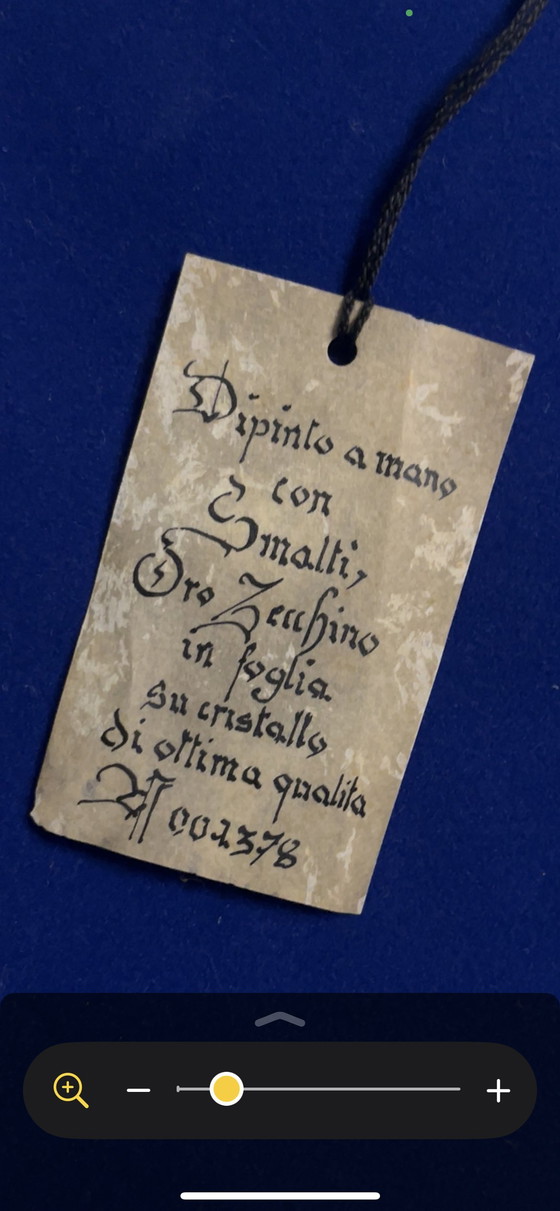 Dipinto a mano
con
Smalti,
Oro Zecchino
in foglia
su cristallo
di ottima qualita
N 001378